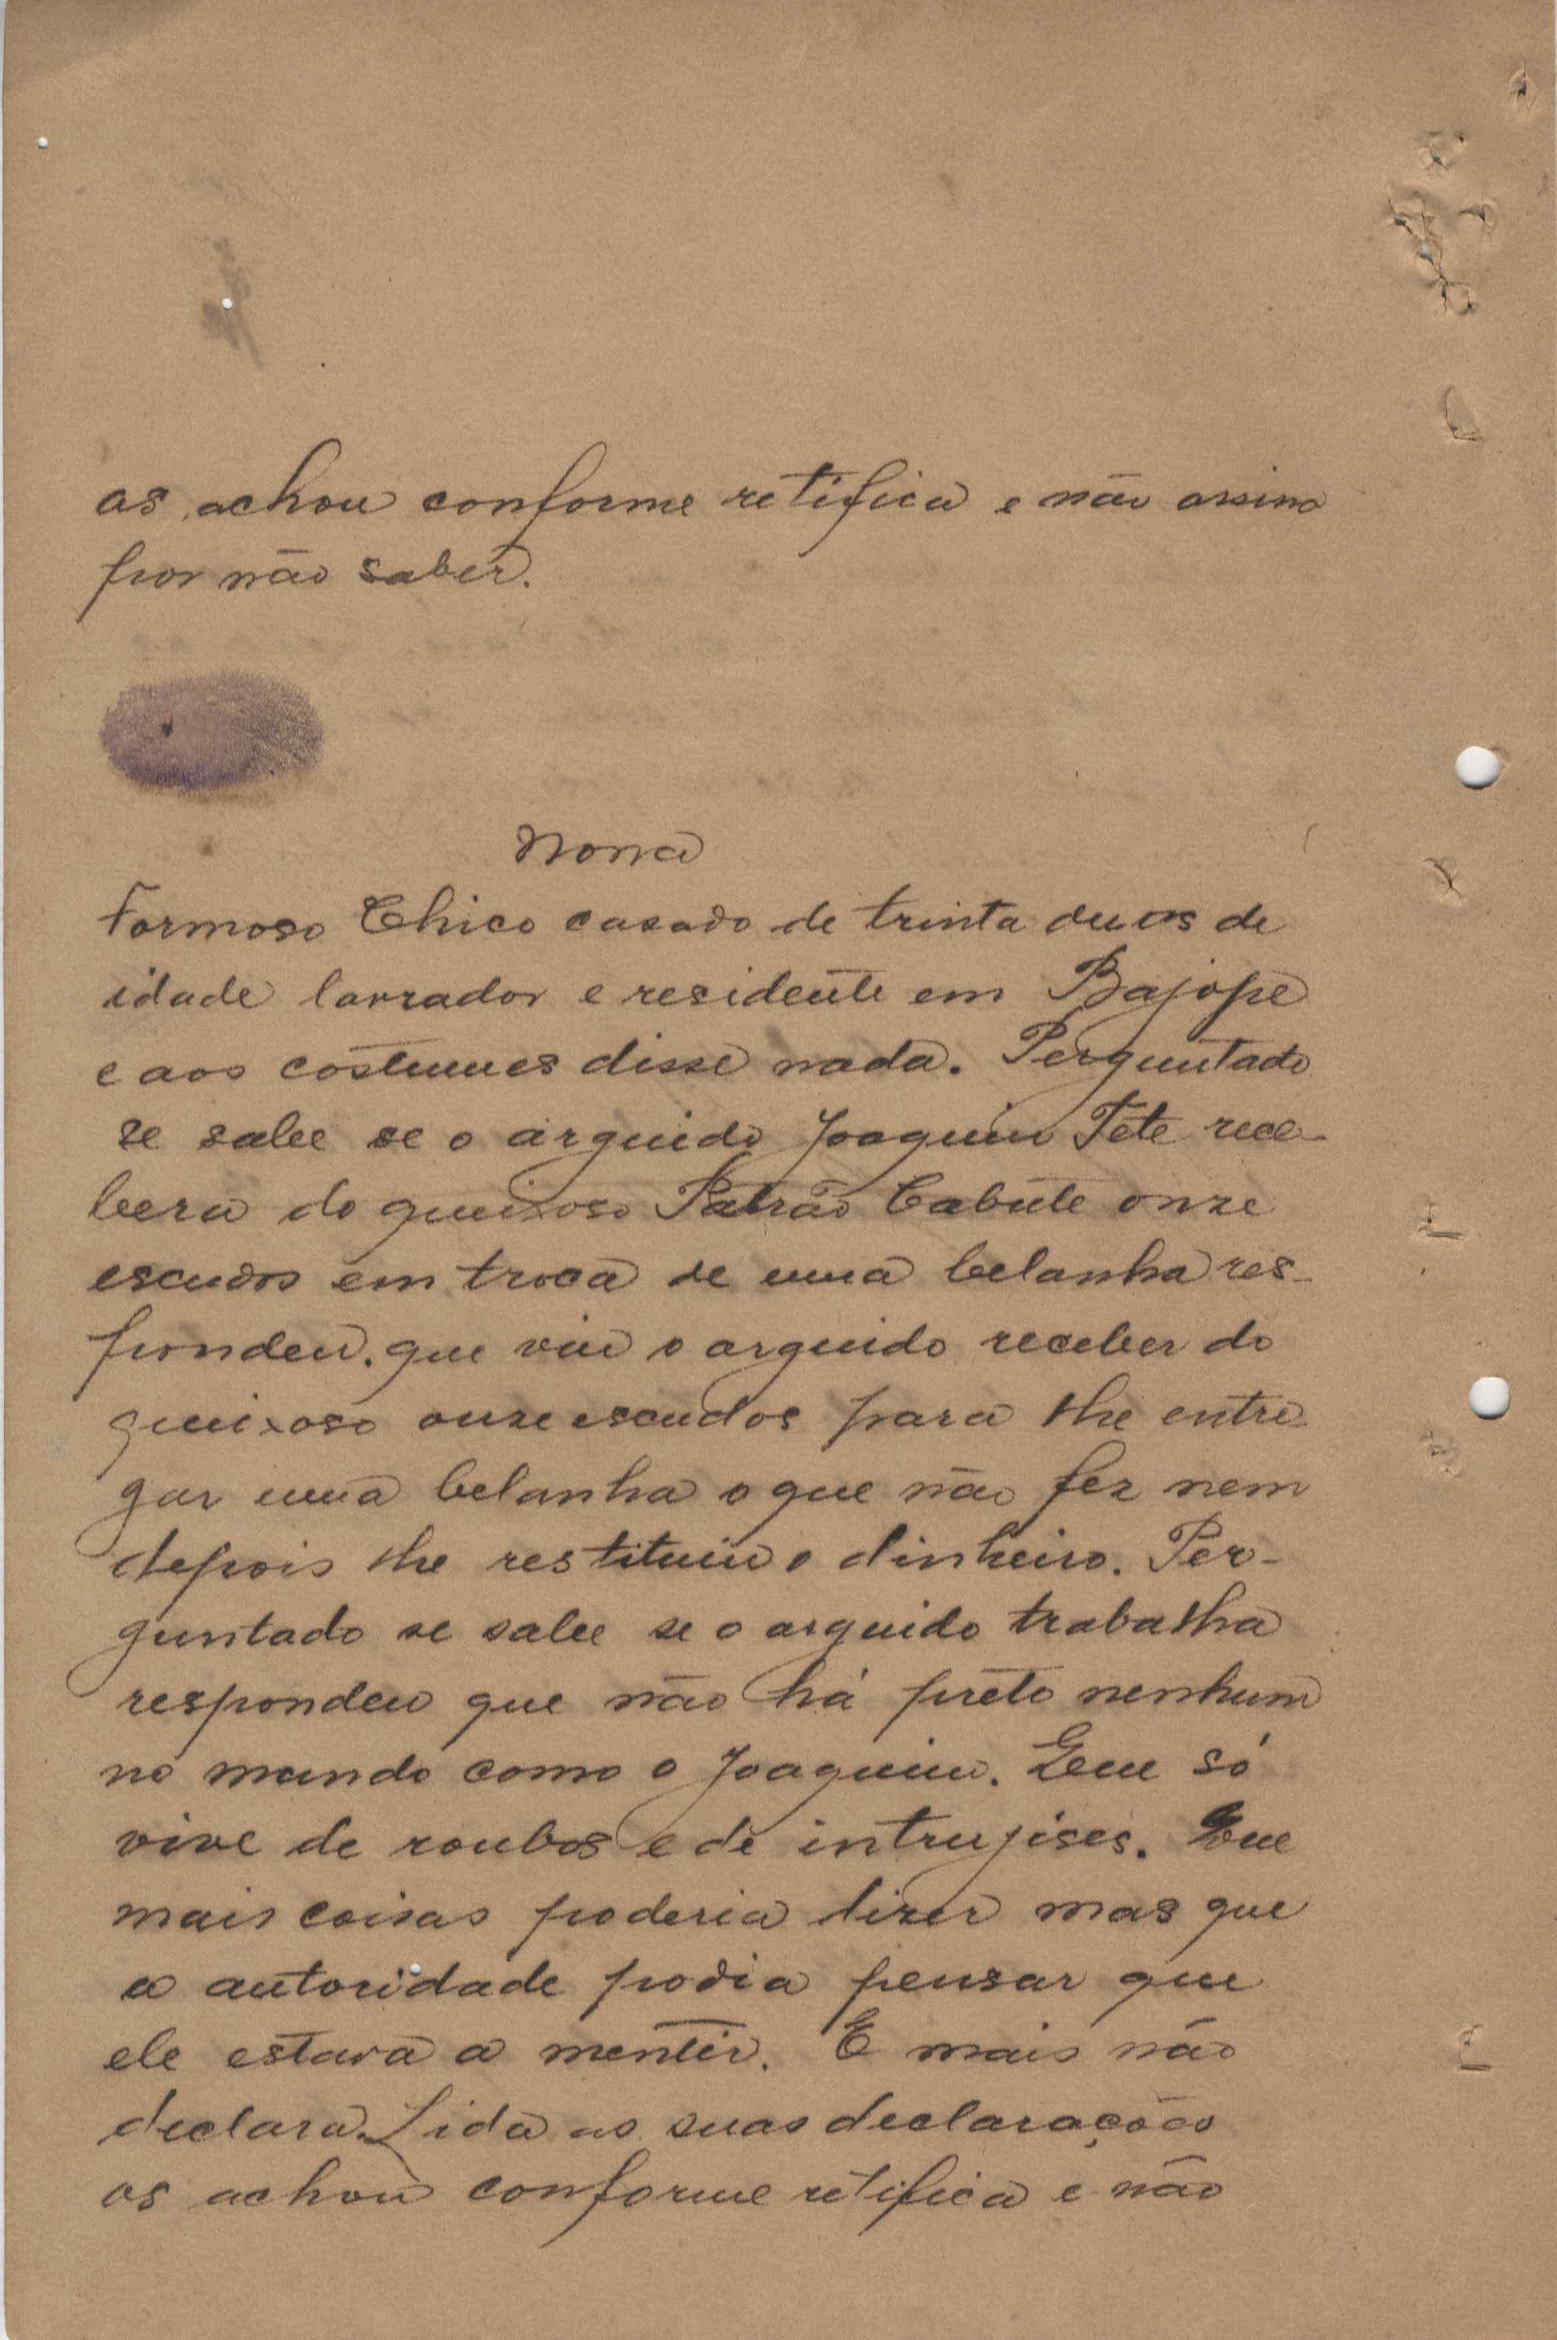 as achou conforme retifica e não assina
por não saber.
Nona
Formoso Chico casado de trinta anos de
idade lavrador e residente em Bajope
e aos costumes disse nada. Perguntado
se sabe se o arguido Joaquim Tete rece-
bera do queixoso Patrão Cabute onze
escudos em troca de uma belanha res-
pondeu. que viu o arguido receber do
queixoso onze escudos para lhe entre
gar uma belanha o que não fez nem
depois lhe restituiu o dinheiro. Per-
guntado se sabe se o arguido trabalha
respondeu que não há preto nenhum
no mundo como o Joaquim. Que só
vive de roubos e de intrujises. Que
mais coisas poderia dizer mas que
a autoridade podia pensar que
ele estava a mentir. E mais não
declara. Lida as suas declarações
as achou conforme retifica e não